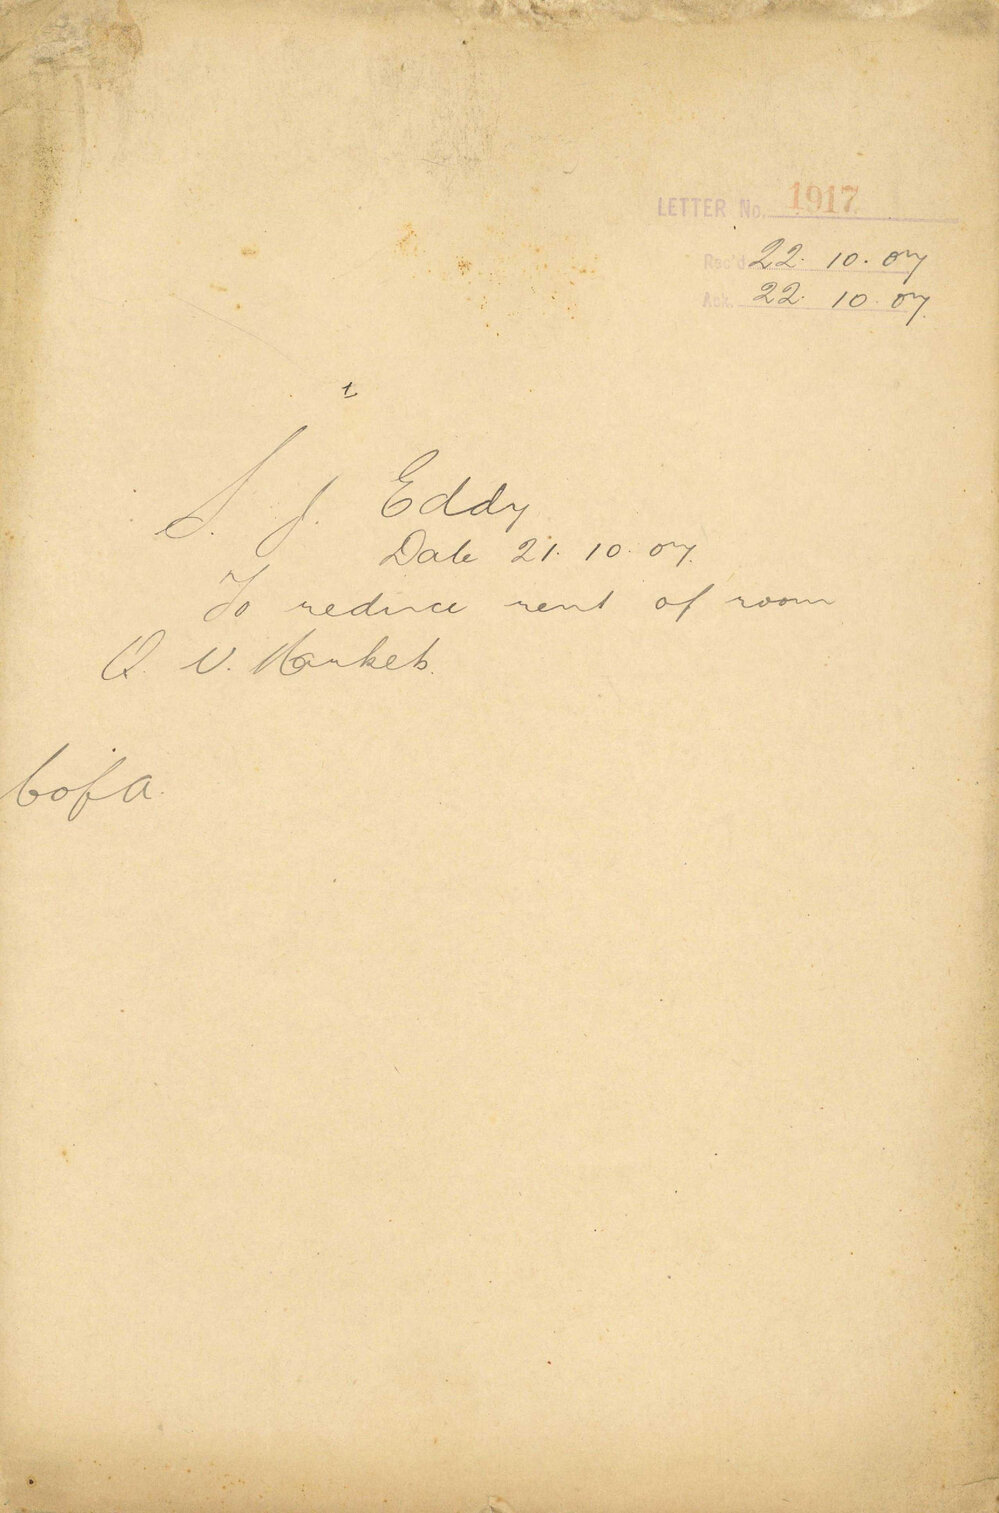 LETTER No. 1917
Rec'd 22. 10. 07
Ack. 22. 10. 07.
S. J. Eddy
Date 21. 10. 07.
To reduce rent of room
Q. V. Markets.
C of A.